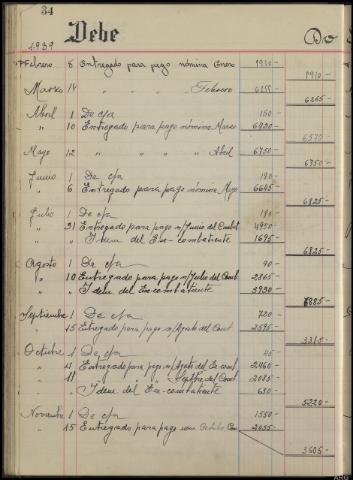 34
1939
Debe
Do
Febrero 8 Entregado para pago nómina Enero 1910-
1910-
Marzo 14 " " " " Febrero 6255-
6255-
Abril 1 De c/a 180-
" 10 Entregado para pago nómina Marzo
Mayo 12 " " " " Abril 6750-
6750-
Junio 1 De c/a 180-
" 6 Entregado para pago nómina Mayo 6645-
6825-
Julio 1 De c/a 180-
" 21 Entregado para pago n/ Junio del Combat 4950-
" " Idem del Ex-combatiente 1695-
6825-
Agosto 1 De c/a 90-
" 10 Entregado para pago n/ Julio del Comb 2865-
" " Idem del Ex-combatiente 3930-
6885-
Septiembre 1 De c/a 720-
" 15 Entregado para pago n/ Agosto del Comt 2595-
3315-
Octubre 1 De c/a 45-
" 4 Entregado para pago n/ Agsto del Ex-comt 2460-
" 11 " " " Septbre del Comt 2085-
" " Idem del Ex-combatiente 630-
5220-
Novembre 1 De c/a 1550-
" 15 Entregado para pago Octubre Com 2055-
3605-